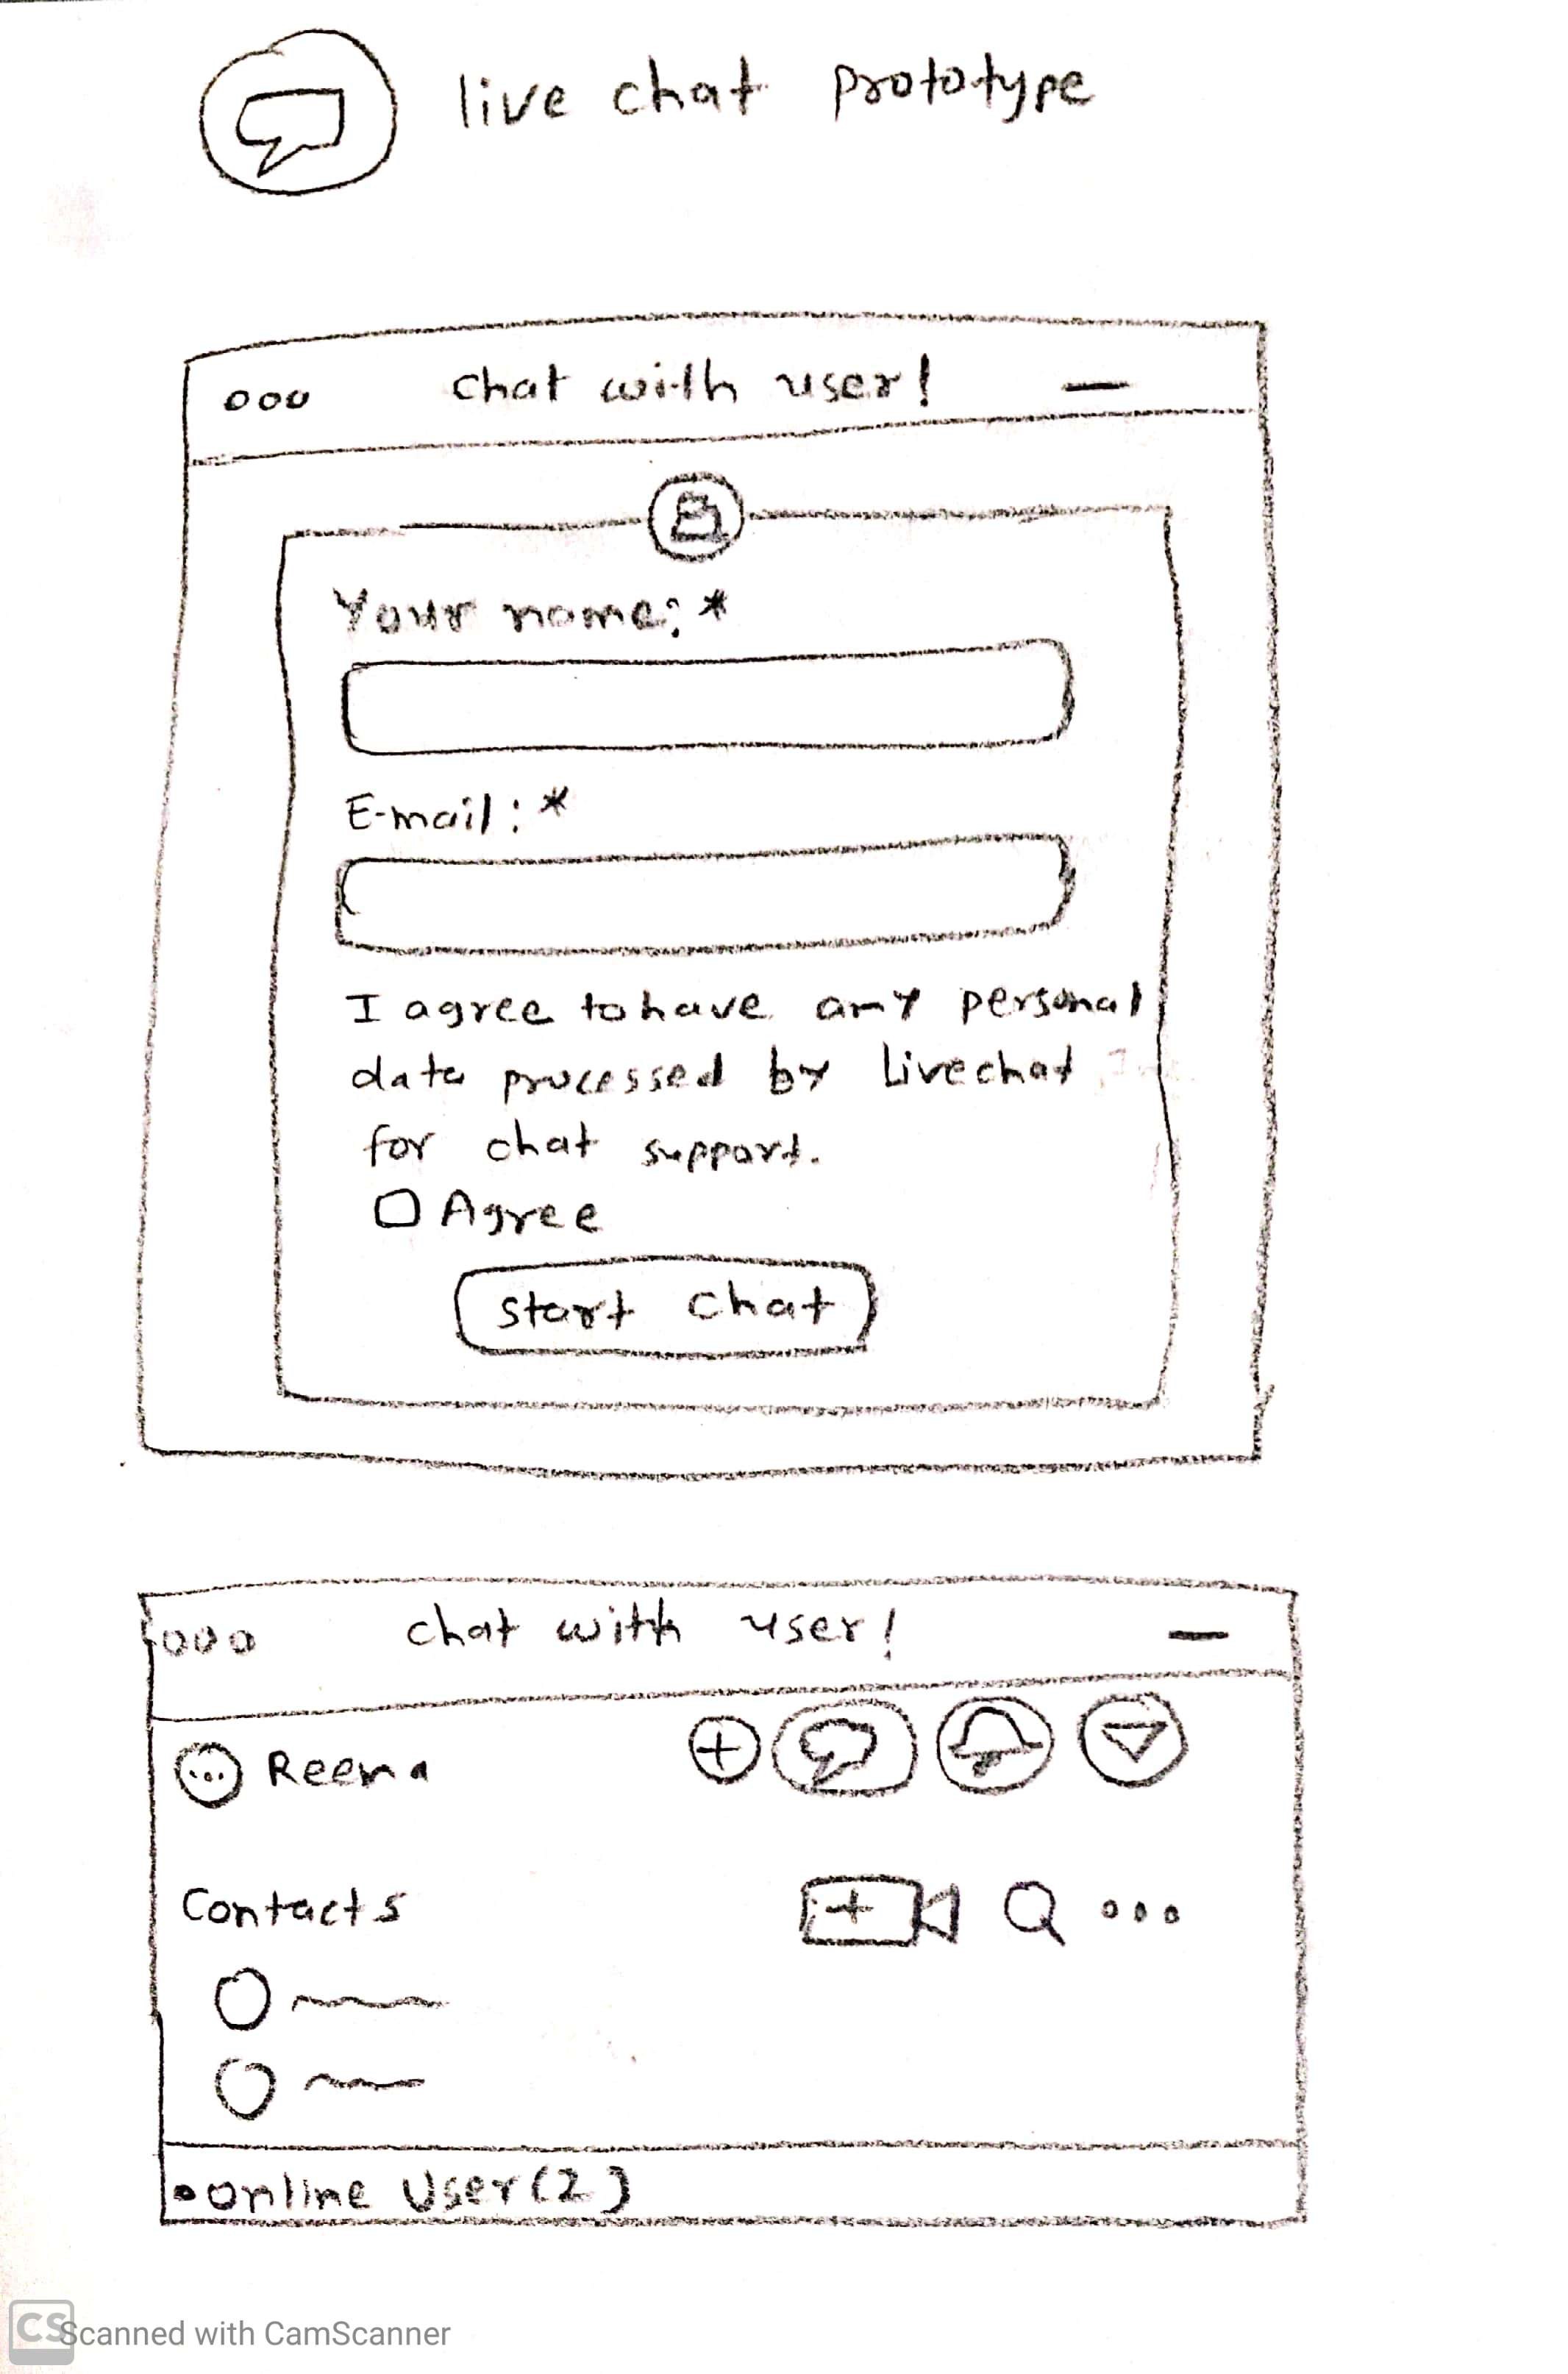 live chat prototype
ooo chat with user! —
Your name: *
E-mail: *
I agree to have any personal
data processed by Livechat
for chat support.
Agree
start chat
ooo chat with user! —
Reena
Contacts
• online User(2)
CS Scanned with CamScanner